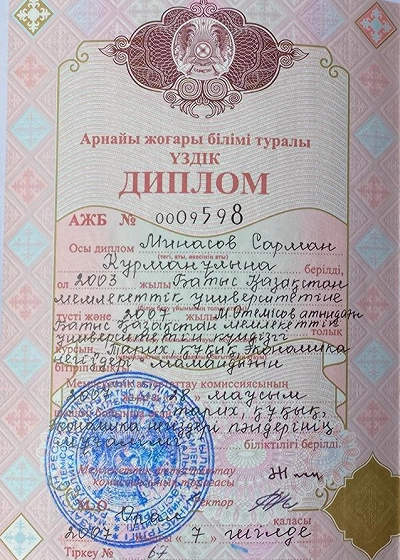 Арнайы жоғары білімі туралы
ҮЗДІК
ДИПЛОМ
АЖБ № 0009598
Осы диплом Минасов Сарман
(тегі, аты, әкесінің аты)
Құрманұлына берілді,
ол 2003 жылы Батыс Қазақстан
мемлекеттік университетіне
түсті және 2007 жылы М.Өтемісов атындағы
Батыс Қазақстан мемлекеттік толық
университетінің күндізгі
курсын, Тарих, құқық, экономика
негіздері мамандығын
бітіріп шықты
Мемлекеттік аттестаттау комиссиясының
2007 28 маусым
тарих, құқық,
экономика негіздері пәндерінің
мұғалімі біліктілігі берілді.
Мемлекеттік аттестаттау
комиссиясының төрағасы
М.О. Ректор
Орал қаласы
2007 « 7 » шілде
Тіркеу № 67